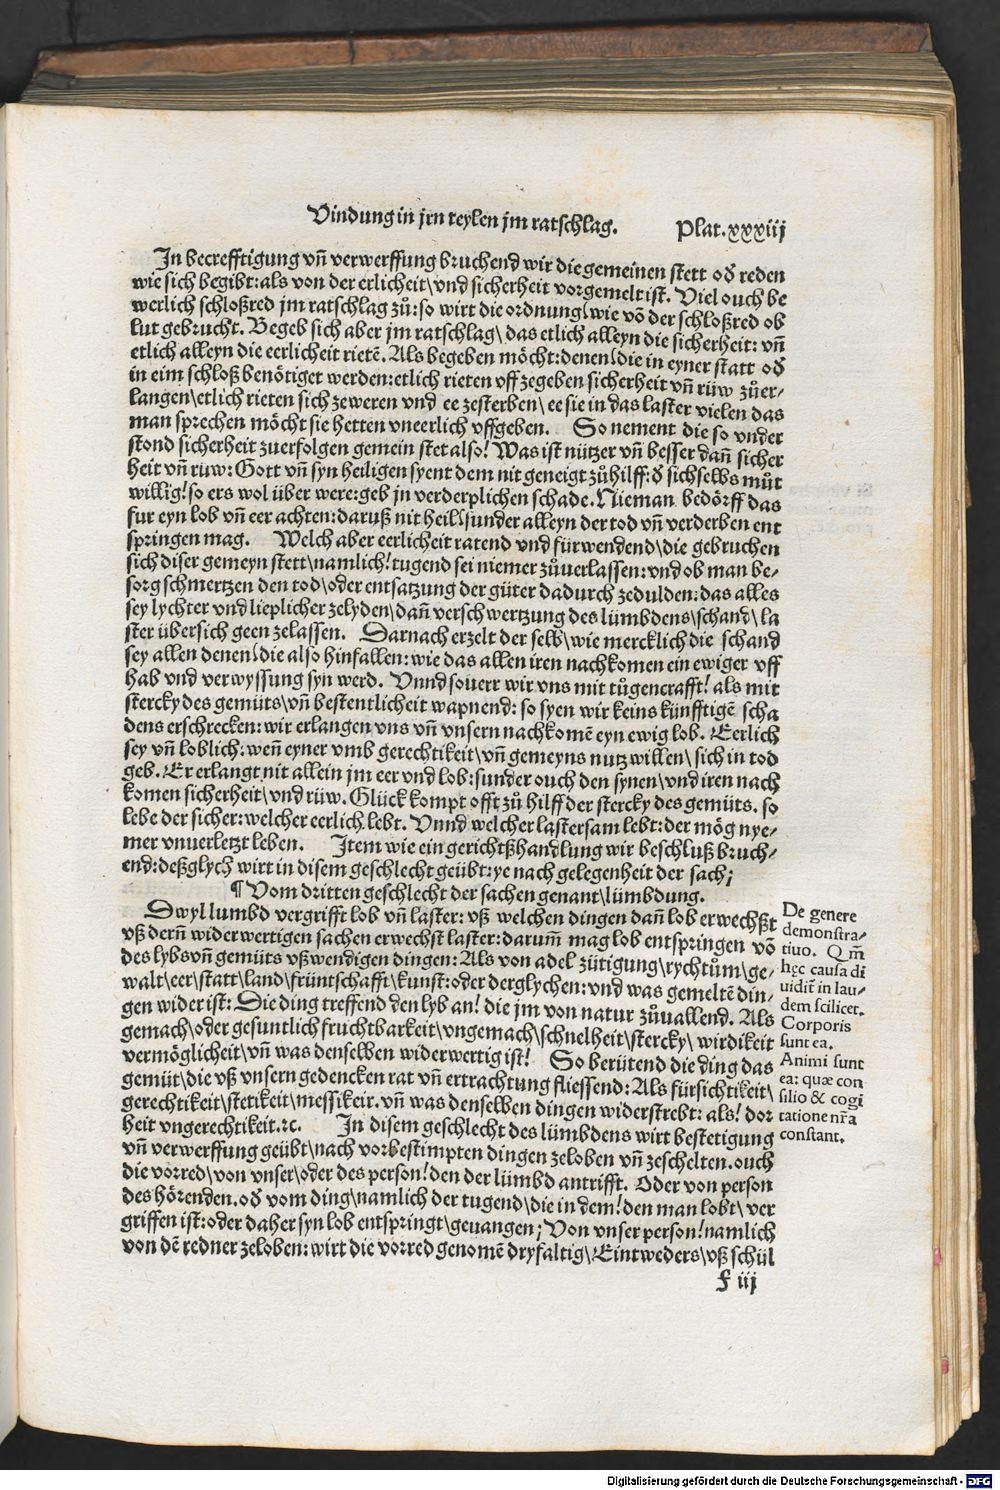 Vindung in jrn teylen jm ratschlag. Plat.xxxiij
In becrefftigung vn̄ verwerffung bruchend wir die gemeinen stett od̄ reden
wie sich begibt: als von der erlicheit\ vnd sicherheit vorgemelt ist. Viel ouch be
werlich schloßred jm ratschlag zů: so wirt die ordnung\ wie vō der schloßred ob
lut gebrucht. Begeb sich aber jm ratschlag\ das etlich alleyn die sicherheit: vn̄
etlich alleyn die eerlicheit rietē. Als begeben möcht: denen\ die in eyner statt od̄
in eim schloß benötiget werden: etlich rieten vff zegeben sicherheit vn̄ rüw zůer-
langen\ etlich rieten sich zeweren vnd ee zesterben\ ee sie in das laster vielen das
man sprechen möcht sie hetten vneerlich vffgeben. So nement die so vnder
stond sicherheit zuerfolgen gemein stet also! Was ist nützer vn̄ besser dan̄ sicher
heit vn̄ rüw: Gott vn̄ syn heiligen syent dem nit geneigt zů hilff: d̄ sichselbs můt
willig! so ers wol über were: geb jn verderplichen schade. Nieman bedörff das
fur eyn lob vn̄ eer achten: daruß nit heil\ sunder alleyn der tod vn̄ verderben ent
springen mag. Welch aber eerlicheit ratend vnd fürwendend\ die gebruchen
sich diser gemeyn stett\ namlich! tugend sei niemer zůuerlassen: vnd ob man be-
sorg schmertzen den tod\ oder entsatzung der güter dadurch zedulden: das alles
sey lychter vnd lieplicher zelyden\ dan̄ verschwertzung des lümbdens\ schand\ la
ster übersich geen zelassen. Darnach erzelt der selb\ wie mercklich die schand
sey allen denen\ die also hinfallen: wie das allen iren nachkomen ein ewiger vff
hab vnd verwyssung syn werd. Vnnd souerr wir vns mit tůgencrafft! als mit
stercky des gemüts\ vn̄ bestentlicheit wapnend: so syen wir keins künfftigē scha
dens erschrecken: wir erlangen vns vn̄ vnsern nachkomē eyn ewig lob. Eerlich
sey vn̄ loblich: wen̄ eyner vmb gerechtikeit\ vn̄ gemeyns nutz willen\ sich in tod
geb. Er erlangt nit allein jm eer vnd lob: sunder ouch den synen\ vnd iren nach
komen sicherheit\ vnd rüw. Glück kompt offt zů hilff der stercky des gemüts. so
lebe der sicher: welcher eerlich lebt. Vnnd welcher lastersam lebt: der mög nye-
mer vnuerletzt leben. Item wie ein gerichtßhandlung wir beschluß bruch-
end: deßglych wirt in disem geschlecht geübt: ye nach gelegenheit der sach;
¶ Vom dritten geschlecht der sachen genant\ lümbdung.
Dwyl lumbd vergrifft lob vn̄ laster: vß welchen dingen dan̄ lob erwechßt
vß dern̄ widerwertigen sachen erwechst laster: darum̄ mag lob entspringen vō
des lybs vn̄ gemüts vßwendigen dingen: Als von adel zütigung\ rychtům\ ge-
walt\ eer\ statt\ land\ früntschafft\ kunst: oder derglychen: vnd was gemeltē din-
gen wider ist: Die ding treffend den lyb an! die jm von natur zůuallend. Als
gemach\ oder gesuntlich fruchtbarkeit\ vngemach\ schnelheit\ stercky\ wirdikeit
vermöglicheit\ vn̄ was denselben widerwertig ist! So berütend die ding das
gemüt\ die vß vnsern gedencken rat vn̄ ertrachtung fliessend: Als fürsichtikeit\
gerechtikeit\ stetikeit\ messikeir. vn̄ was denselben dingen widerstrebt: als! dor
heit vngerechtikeit.ꝛc. In disem geschlecht des lümbdens wirt bestetigung
vn̄ verwerffung geübt\ nach vorbestimpten dingen zeloben vn̄ zeschelten. ouch
die vorred\ von vnser\ oder des person! den der lümbd antrifft. Oder von person
des hörenden. od̄ vom ding\ namlich der tugend\ die in dem! den man lobt\ ver
griffen ist: oder daher syn lob entspringt\ geuangen; Von vnser person! namlich
von dē redner zeloben: wirt die vorred genomē dryfaltig\ Eintweders\ vß schül
f iij
De genere
demonstra-
tiuo. Qm̄
hęc causa di
uidit̄ in lau-
dem scilicet.
Corporis
sunt ea.
Animi sunt
ea: quæ con
silio & cogi
tatione nr̄a
constant.
Digitalisierung gefördert durch die Deutsche Forschungsgemeinschaft - DFG